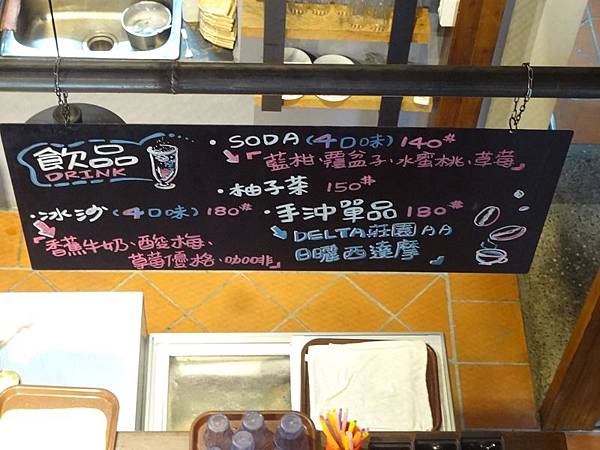 飲品
DRINK
·SODA(4口味)140#
「藍柑、覆盆子、水蜜桃、草莓」
·柚子茶 150#
·冰沙(4口味)180#
「香蕉牛奶、酸梅、
草莓優格、咖啡」
·手沖單品 180#
「DELTA莊園AA
日曬西達摩」